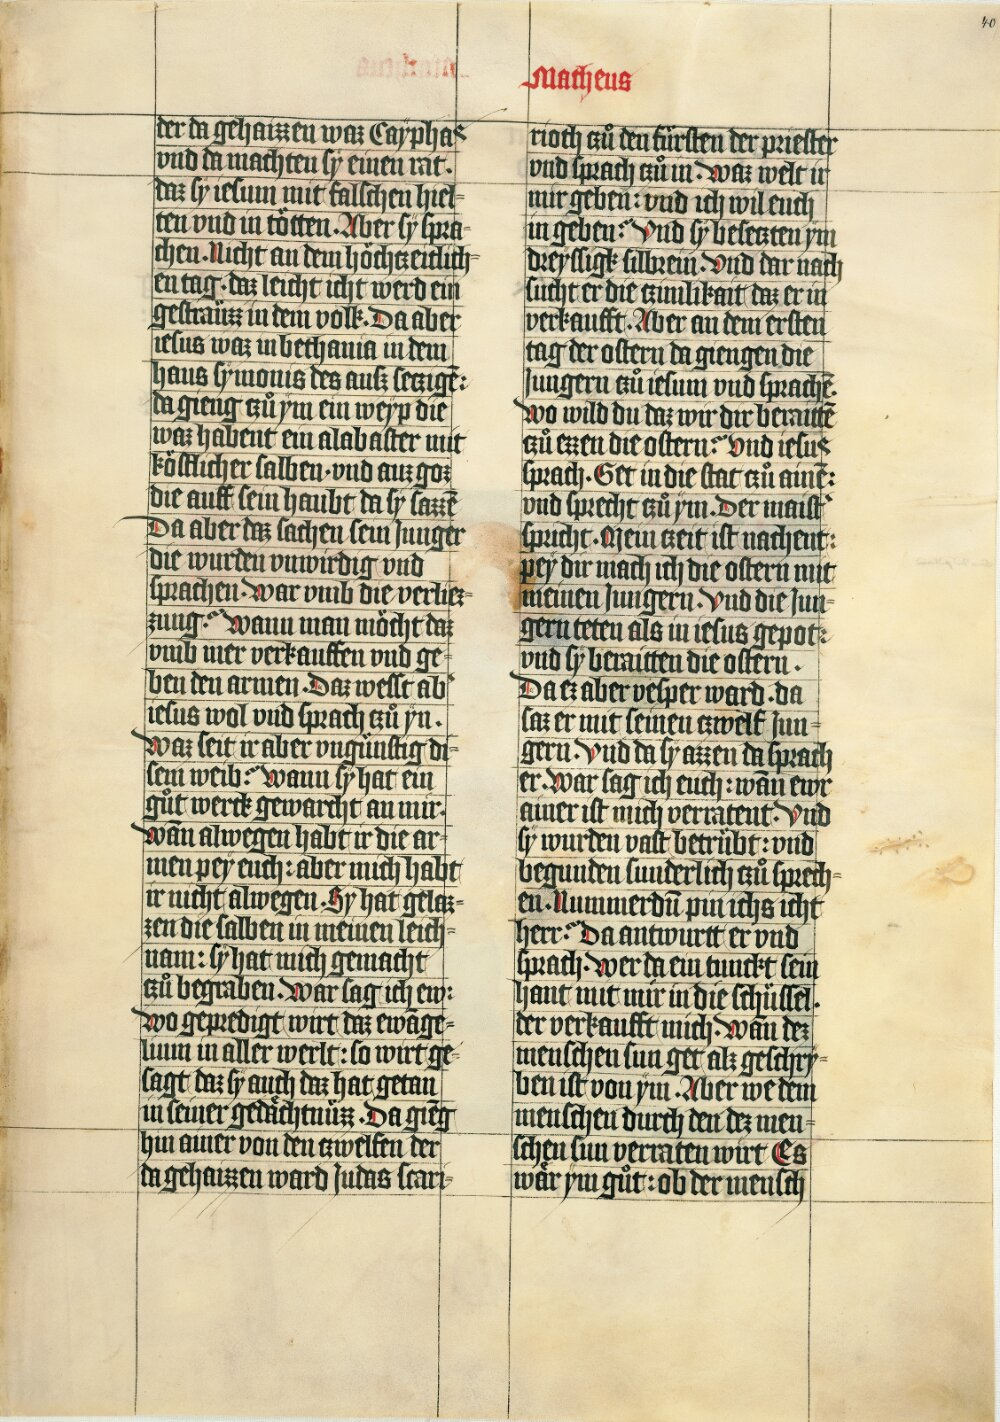 40
Matheus
der da gehaizzen waz Cayphas
vnd da machten sy einen rat.
daz sy iesum mit falschen hiel-
ten vnd in tötten. Aber sy spra-
chen. Nicht an dem höchtzeitlich-
en tag. daz leicht icht werd ein
gesträuzz in dem volk. Da aber
iesus waz in bethania in dem
haus symonis des ausz setzigē:
da gieng tzů ym ein weyp die
waz habent ein alabaster mit
köstlicher salben. vnd auz goz
die auff sein haubt da sy sazzē
Da aber daz sachen sein Junger
die wurden vnwirdig vnd
sprachen. War vmb die verliez-
zung? Wann man möcht daz
vmb mer verkauffen vnd ge-
ben den armen. Daz wesst ab'
iesus wol vnd sprach tzů yn.
Waz seit ir aber vngünstig di-
sem weib? Wann sy hat ein
gůt werck gewarcht an mir.
Wān alwegen habt ir die ar-
men pey euch: aber mich habt
ir nicht alwegen. Sy hat gelaz-
zen die salben in meinen leich-
nam: sy hat mich gemacht
tzů begraben. War sag ich ew:
wo gepredigt wirt daz ewāge-
lium in aller werlt: so wirt ge-
sagt daz sy auch daz hat getan
in seiner gedächtnüzz. Da giēg
hin ainer von den tzwelfen der
da gehaizzen ward Judas scari-
rioth tzů den fürsten der priester
vnd sprach tzů in. Waz welt ir
mir geben: vnd ich wil euch
in geben? Vnd sy besetzten ym
dreyssigk silbrein. Vnd dar nach
sucht er die tzimlikait daz er in
verkaufft. Aber an dem ersten
tag der ostern da giengen die
Jungern tzů iesum vnd sprachē.
Wo wild du daz wir dir beraitē
tzů ezzen die ostern? Vnd iesus
sprach. Get in die stat tzů ainē:
vnd sprecht tzů ym. Der maist'
spricht. Mein tzeit ist nachent:
pey dir mach ich die ostern mit
meinen Jungern. Vnd die Jun-
gern teten als in iesus gepot:
vnd sy beraitten die ostern.
Da ez aber vesper ward. da
saz er mit seinen tzwelf Jun-
gern. Vnd da sy azzen da sprach
er. War sag ich euch: wān ewr
ainer ist mich verratent. Vnd
sy wurden vast betrübt: vnd
begunden sunderlich tzů sprech-
en. Nummerdū pin ichs icht
herr? Da antwurtt er vnd
sprach. Wer da ein tunckt sein
hant mit mir in die schüssel.
der verkaufft mich. Wān dez
menschen sun get alz geschry-
ben ist von ym. Aber we dem
menschen durch den dez men-
schen sun verraten wirt Es
wär ym gůt: ob der mensch